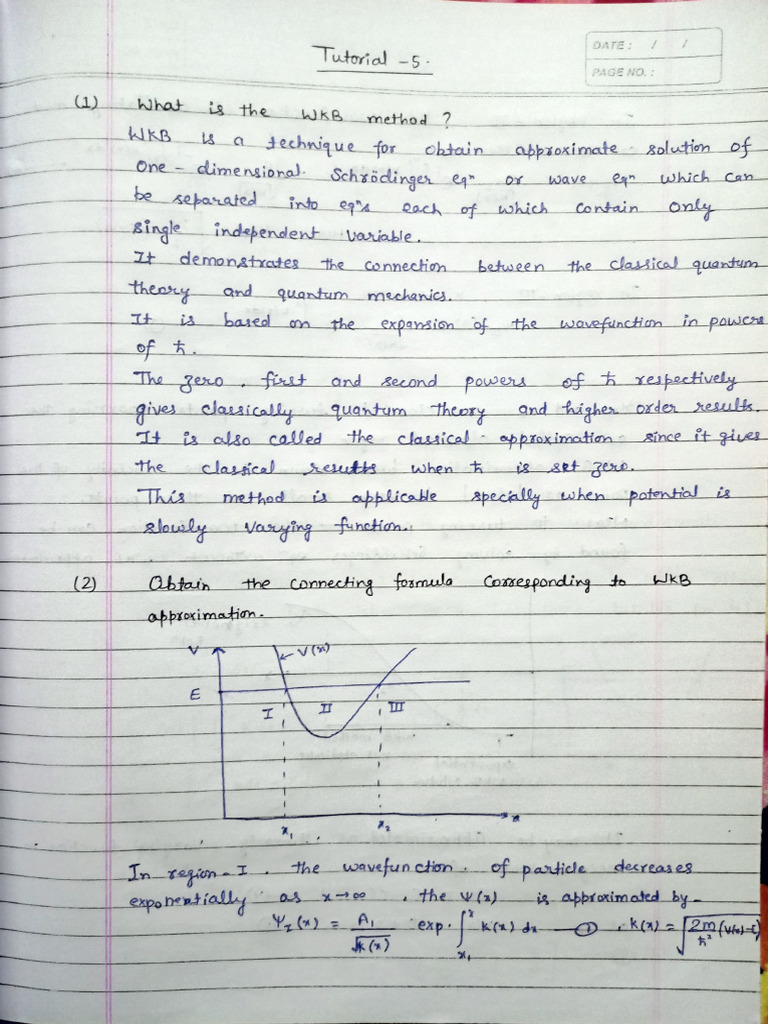 Tutorial -5.
DATE: / /
PAGE NO. :
(1) What is the WKB method ?
WKB is a technique for obtain approximate solution of
one - dimensional Schrödinger eqⁿ or wave eqⁿ which can
be separated into eqⁿs each of which contain only
single independent variable.
It demonstrates the connection between the classical quantum
theory and quantum mechanics.
It is based on the expansion of the wavefunction in powers
of ħ.
The zero, first and second powers of ħ respectively
gives classically quantum theory and higher order results.
It is also called the classical approximation since it gives
the classical results when ħ is set zero.
This method is applicable specially when potential is
slowly varying function.
(2) Obtain the connecting formula corresponding to WKB
approximation.
V V(x)
E
I II III
x₁ x₂ x
In region - I, the wavefunction of particle decreases
exponentially as x→∞, the Ψ(x) is approximated by -
Ψ_I(x) = A₁/√k(x) exp. ∫_{x₁}^{x} k(x) dx — ①, k(x) = √(2m/ħ² (V(x)-E))